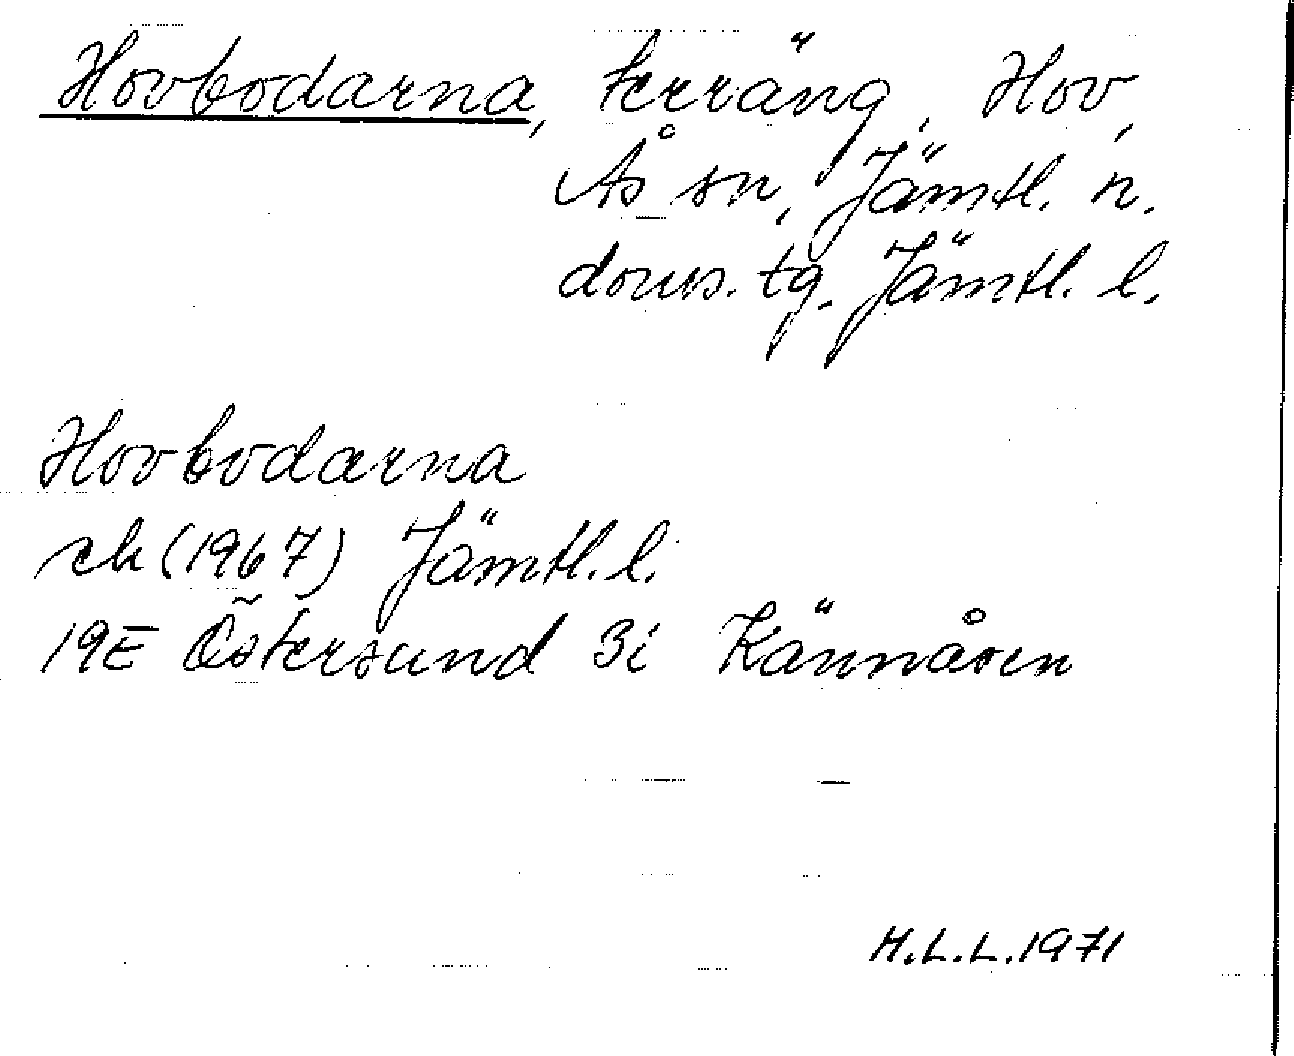 Hovbodarna, terräng, Hov,
Ås sn, Jämtl. n.
doms. tg. Jämtl. l.
Hovbodarna
ek (1967) Jämtl. l.
19E Östersund 3i Kännåsen
H.L.L. 1971